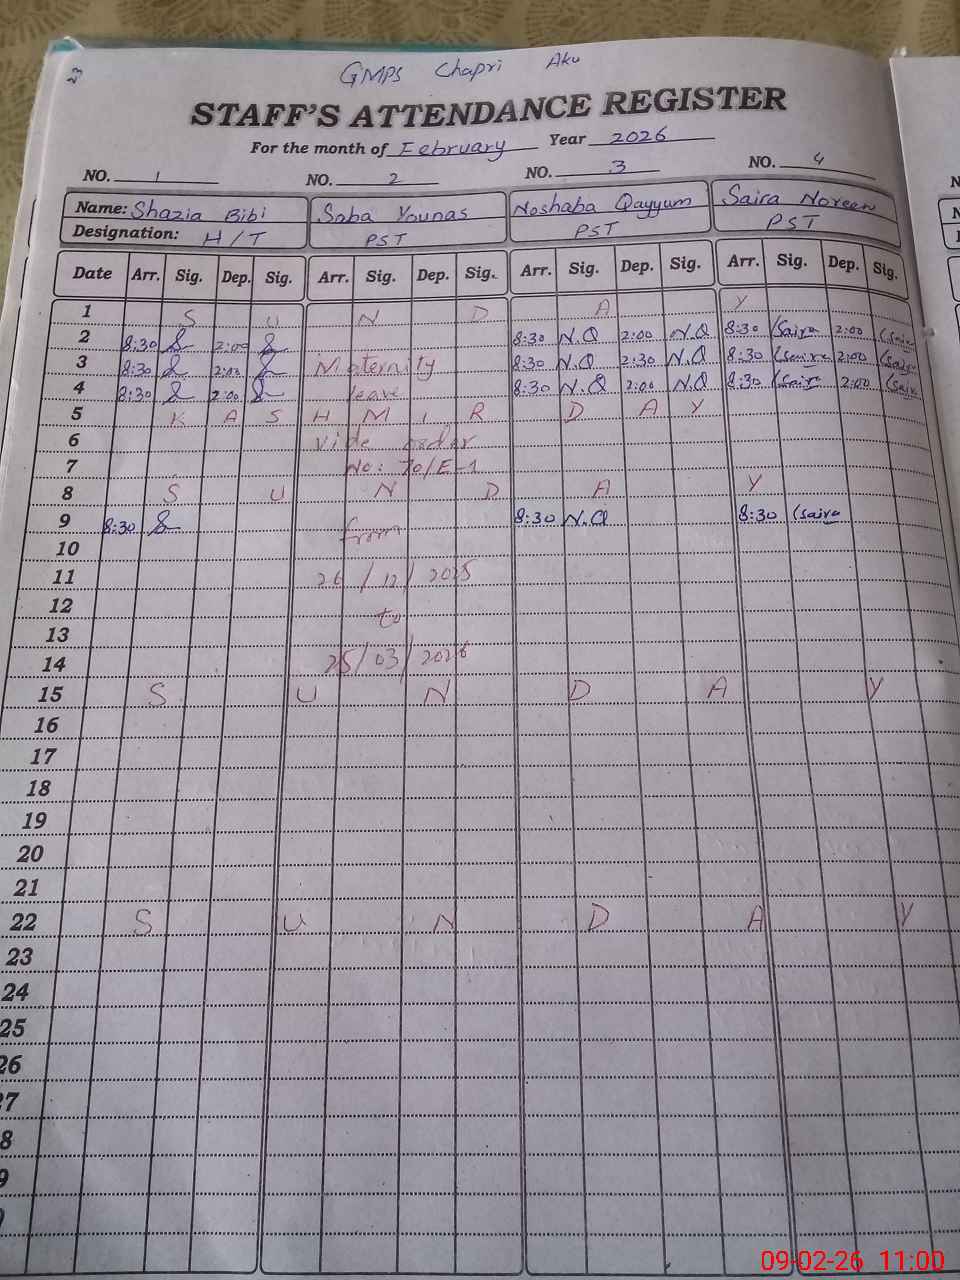 23
GMPS Chapri Aku
STAFF'S ATTENDANCE REGISTER
For the month of February Year 2026
NO. 1 NO. 2 NO. 3 NO. 4
Name: Shazia Bibi Saba Younas Noshaba Qayyum Saira Noreen
Designation: H/T PST PST PST
Date Arr. Sig. Dep. Sig. Arr. Sig. Dep. Sig. Arr. Sig. Dep. Sig. Arr. Sig. Dep. Sig.
1 S U N D A Y
2 8:30 2:00 8:30 N.Q 2:00 N.Q 8:30 Saira 2:00 Saira
3 8:30 2:00 Maternity 8:30 N.Q 2:30 N.Q 8:30 Saira 2:00 Saira
4 8:30 2:00 leave 8:30 N.Q 2:00 N.Q 8:30 Saira 2:00 Saira
5 K A S H M I R D A Y
6 Vide order
7 No: 70/E-1
8 S U N D A Y
9 8:30 from 8:30 N.Q 8:30 Saira
10
11 26/12/2025
12 to
13
14 25/03/2026
15 S U N D A Y
16
17
18
19
20
21
22 S U N D A Y
23
24
25
26
7
8
9
09-02-26 11:00